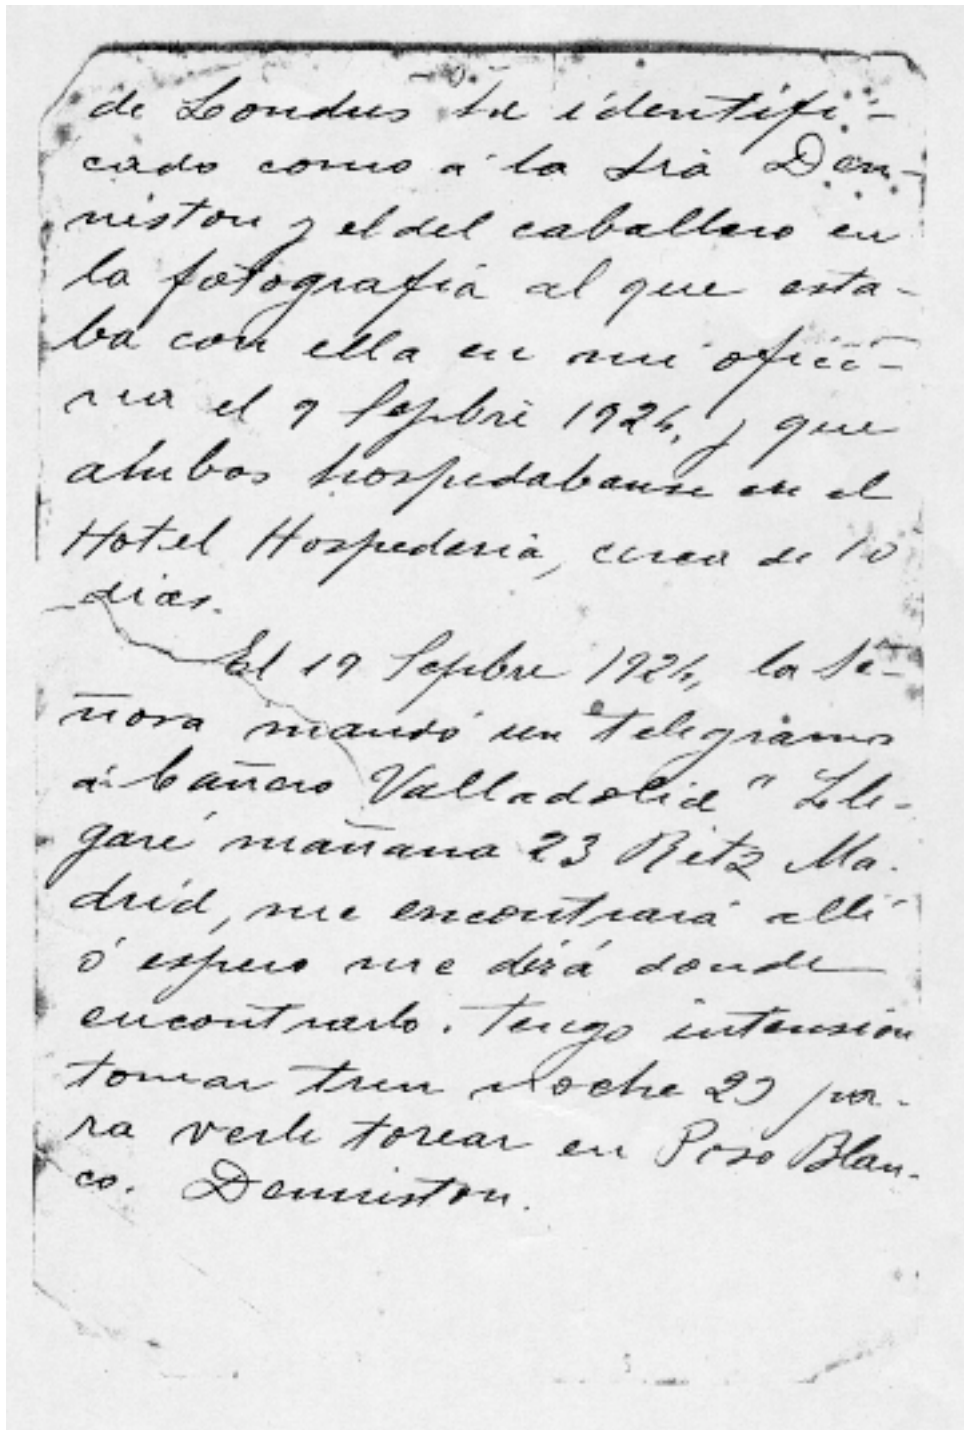 de Londres he identifi-
cado como á la Sra Den-
niston y el del caballero en
la fotografia al que esta-
ba con ella en mi ofici-
na el 9 Sepbre 1924, y que
ambos hospedabanse en el
Hotel Hospederia, cerca de 10
dias.
El 19 Sepbre 1924, la Se-
ñora mandó un telegrama
á Cañero Valladolid " Lle-
garé mañana 23 Ritz Ma-
drid, me encontrará allí
ó espero me dirá donde
encontrarlo. Tengo intension
tomar tren noche 23 pa-
ra verle torear en Piso Blan-
co. Denniston.